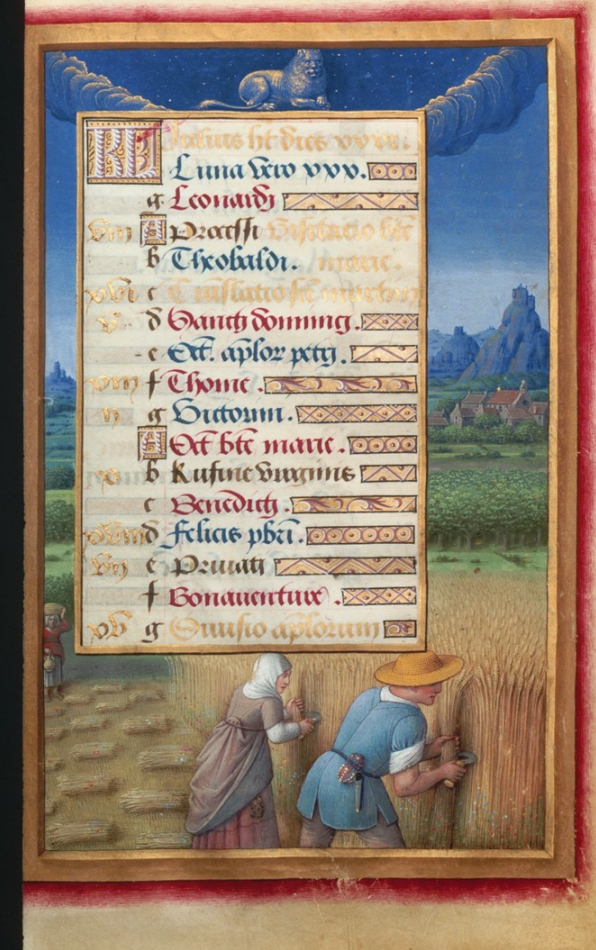 KL Julius ht dies xxxi.
Luna vero xxx.
g Leonardi
viii A Processi Visitatio bte
b Theobaldi. marie.
xvi c Translatio sci martini
v d Sancti dominici.
e Oct. aplor petri.
xiii f Thome.
ii g Victorini.
A Oct bte marie.
x b Rufine virginis
c Benedicti.
xviii d Felicis pbri.
vii e Privati
f Bonaventure.
xv g Divisio aplorum